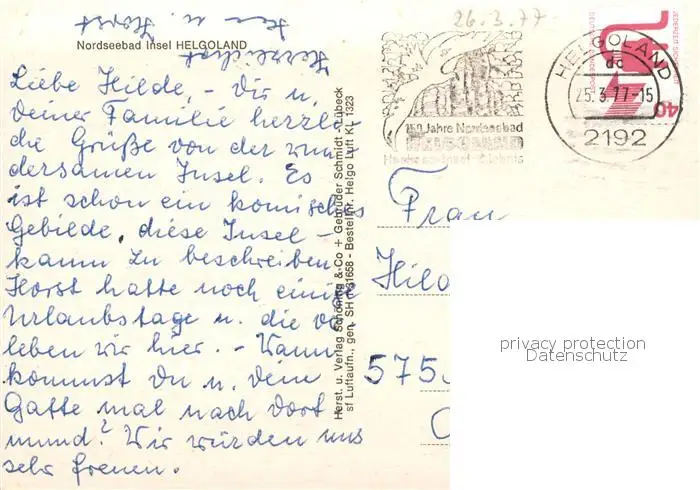 26.3.77
Herzlichst
u. Horst
Nordseebad Insel HELGOLAND
Liebe Hilde, - Dir u.
Deiner Familie herzli
che Grüße von der wun
dersamen Insel. Es
ist schon ein komisches
Gebilde, diese Insel -
kaum zu beschreiben.
Horst hatte noch einige
Urlaubstage u. die ver
leben wir hier. - Wann
kommst Du u. Dein
Gatte mal nach Dort
mund? Wir würden uns
sehr freuen.
Herst. u. Verlag Schöning & Co + Gebrüder Schmidt · Lübeck
sf Luftaufn., gen. SH 31658 - Bestell-Nr. Helgo Luft KL 1323
150 Jahre Nordseebad
HELGOLAND
HELGOLAND
dc
25.3.77-15
2192
JEDERZEIT SICHERHEIT
DEUTSCHE BUNDESPOST
40
Frau
Hild
575
privacy protection
Datenschutz